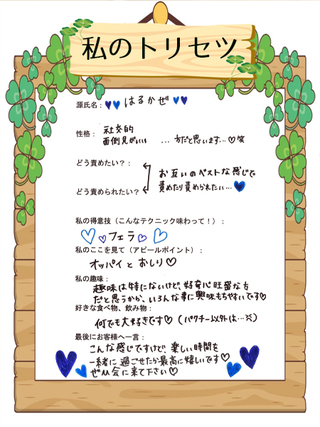 私のトリセツ
源氏名：💙💙はるかぜ💙💙
性格：社交的
面倒見がいい …方だと思います…♡笑
どう責めたい？：
お互いのベストな感じで
責めたり責められたい…💙
どう責められたい？：
私の得意技（こんなテクニック味わって！）：
♡♡フェラ♡♡
私のここを見て（アピールポイント）：
オッパイとおしり♡
私の趣味：
趣味は特にないけど、好奇心旺盛な方
だと思うから、いろんな事に興味もちやすいです♡
好きな食べ物、飲み物：
何でも大好きです♡（パクチー以外は…×）
最後にお客様へ一言：
こんな感じですけど、楽しい時間を
一緒に過ごせたら最高に嬉しいです♡
ぜひ会いに来て下さい♡